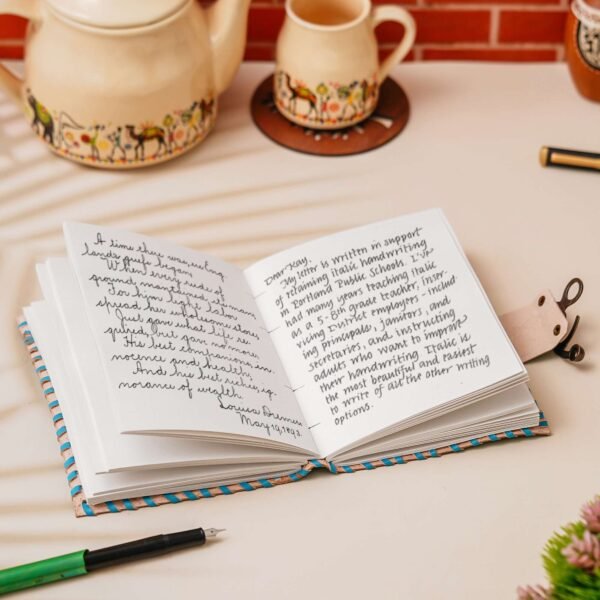 A time there was, ere Eng-
lands griefs began,
When every rude of
ground maintained its man,
For him light labor
spread her wholesome store,
Just gave what life re-
quired, but gave no more,
His best companions, in-
nocence and health,
And his best riches, ig-
norance of wealth.
Louisa
May 19, 1893.
Dear Kay,
My letter is written in support
of retaining italic handwriting
in Portland Public Schools. I've
had many years teaching italic
as a 5-8th grade teacher, inser-
vicing District employers - includ
ing principals, janitors, and
secretaries, and instructing
adults who want to improve
their handwriting. Italic is
the most beautiful and easiest
to write of all the other writing
options.